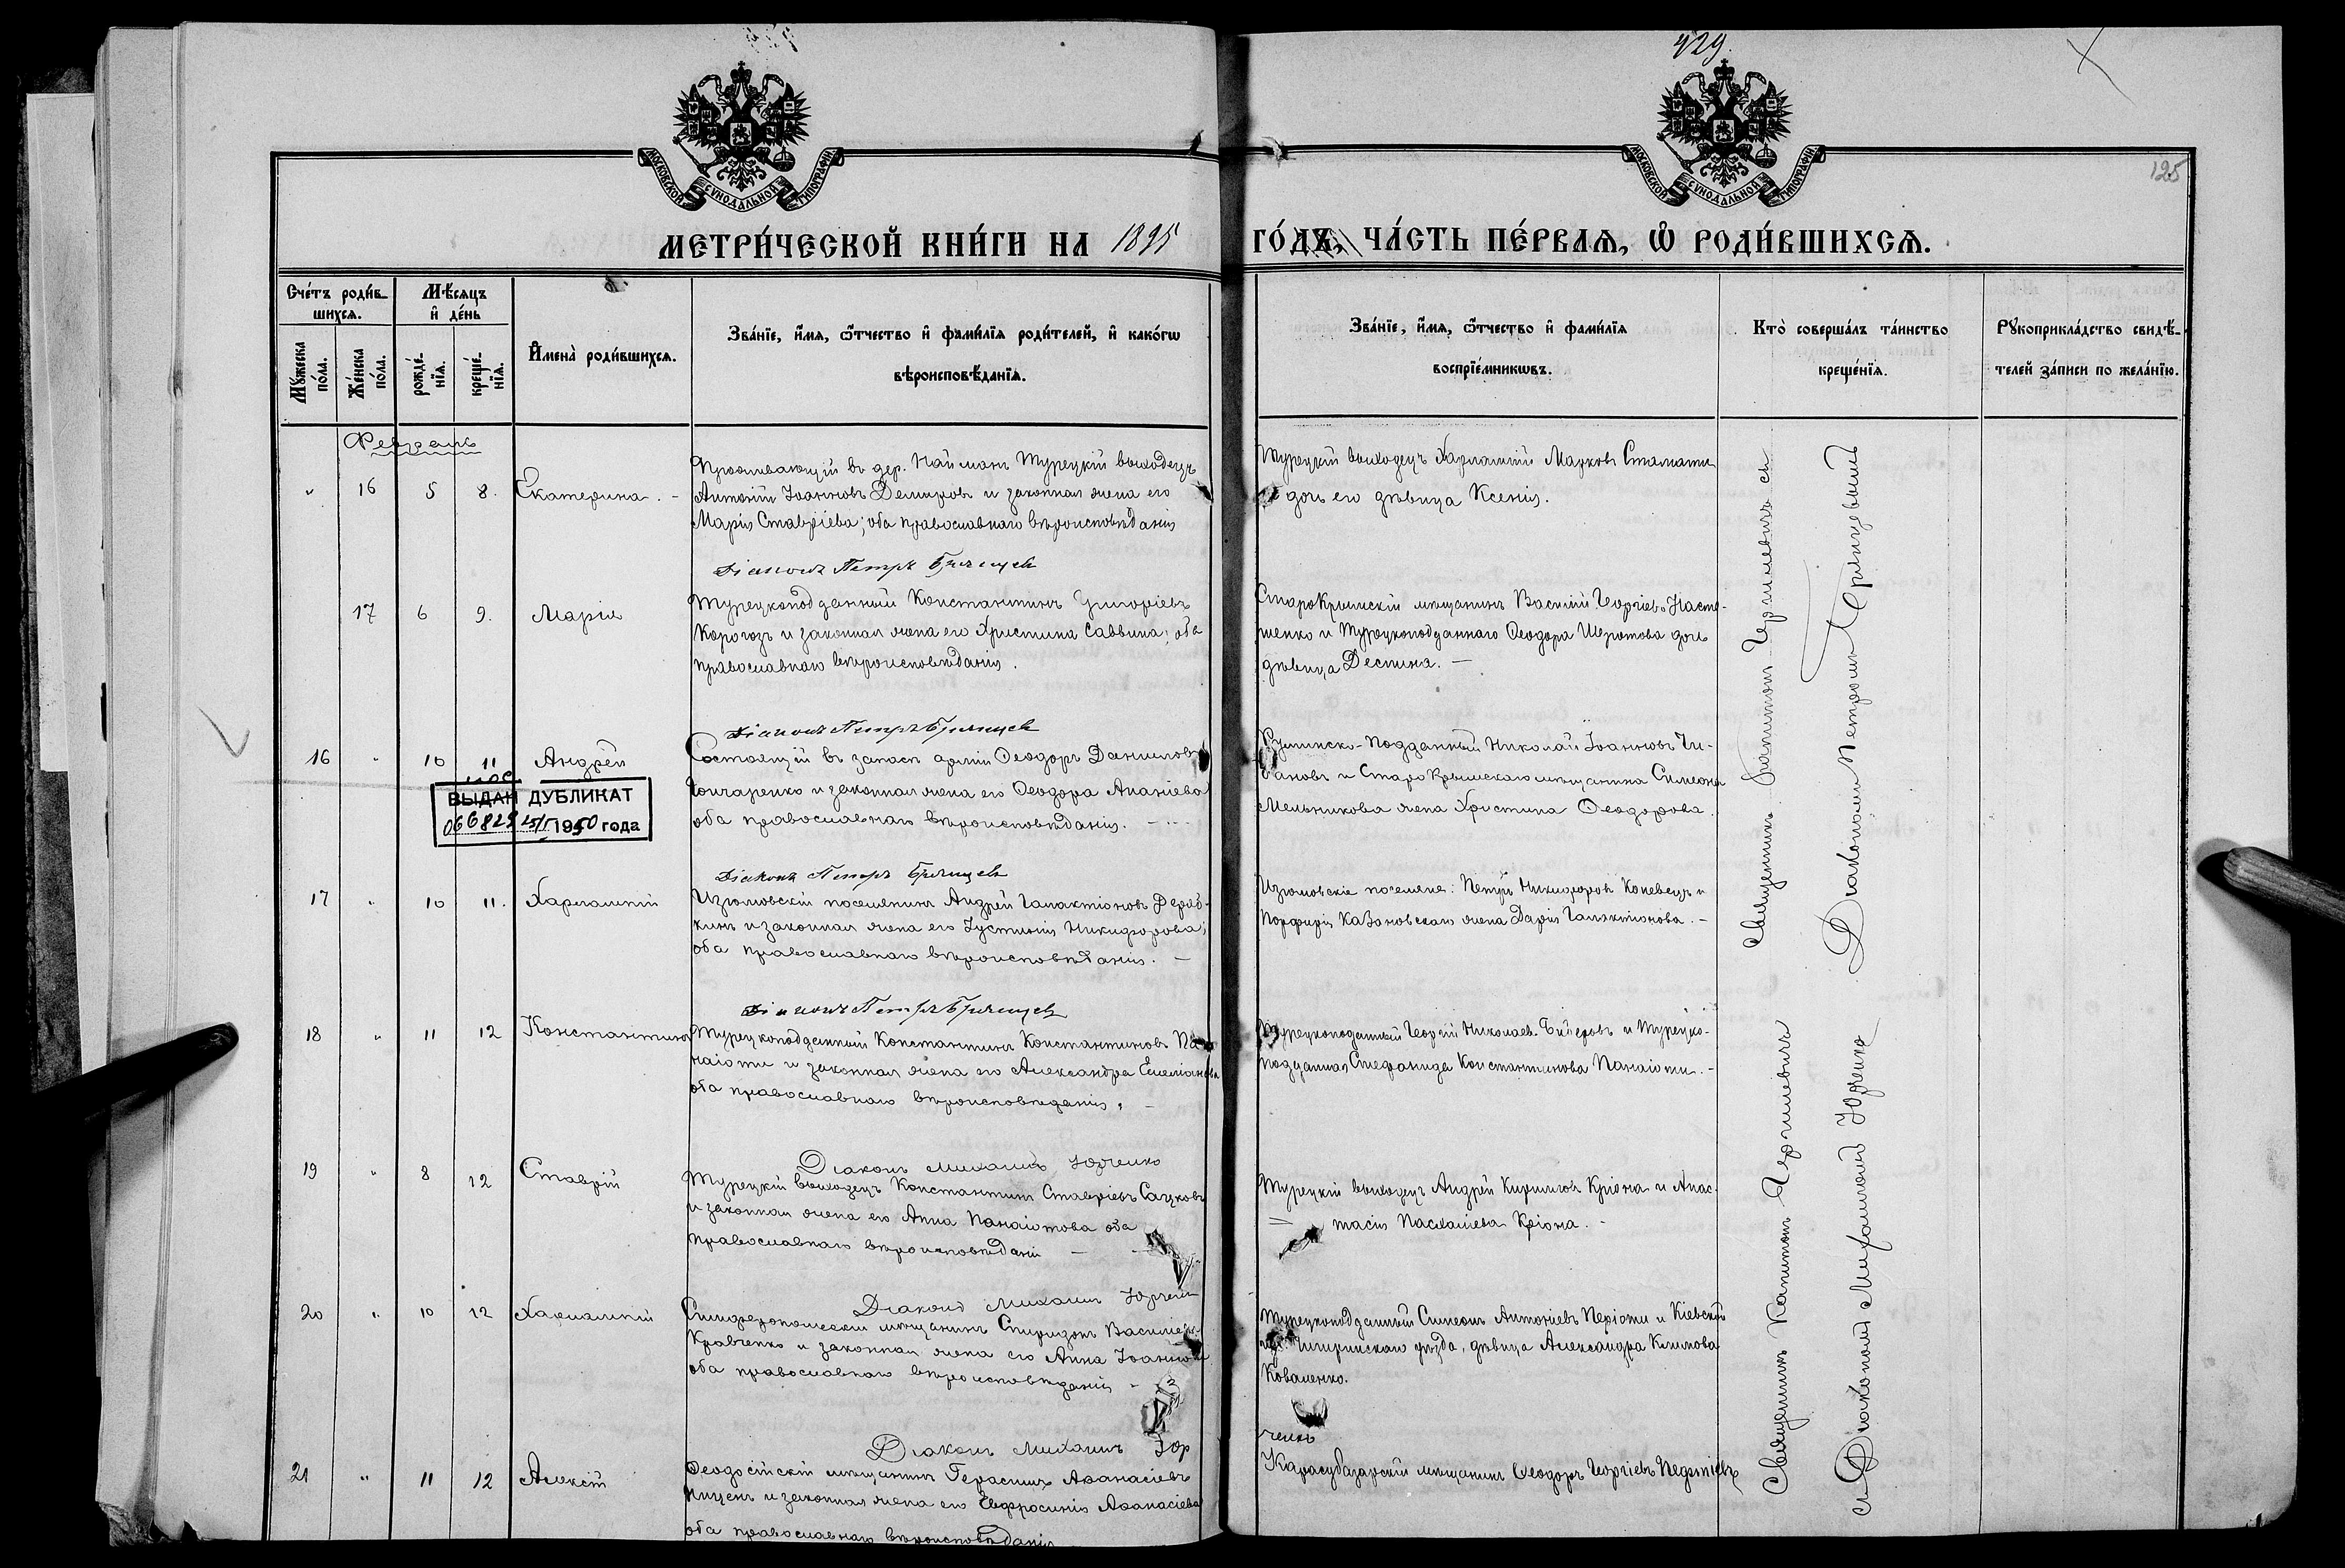 429.
125
МОСКОВСКОЙ СѴНОДАЛЬНОЙ ТИПОГРАФІИ
МОСКОВСКОЙ СѴНОДАЛЬНОЙ ТИПОГРАФІИ
МЕТРИ́ЧЕСКОЙ КНИ́ГИ НА 1895 ГО́ДЪ, ЧА́СТЬ ПЕ́РВАЯ, Ѡ РОДИ́ВШИХСЯ.
Сче́тъ роди́в-
шихся.
Мꙋжеска по́ла.
Же́нска по́ла.
Мѣ́сяцъ и҆ де́нь
рожде́-
нїя.
креще́-
нїя.
И҆мена̀ роди́вшихся.
Зва́нїе, и҆́мя, ѻ҆́тчество и҆ фами́лїя роди́телей, и҆ како́гѡ
вѣроисповѣ́данїя.
Зва́нїе, и҆́мя, ѻ҆́тчество и҆ фами́лїя
воспрїе́мникѡвъ.
Кто̀ соверша́лъ та́инство
креще́нїя.
Рꙋкоприкла́дство свидѣ́-
телей за́писи по жела́нїю.
Февраль
" 16 5 8. Екатерина. -
Проживающій въ дер. Найманъ Турецкій выходецъ
Антоній Іоанновъ Демировъ и законная жена его
Марія Ставріева; оба православнаго вѣроисповѣданія
Турецкій выходецъ Харлампій Марковъ Стамати
и дочь его дѣвица Ксенія.
Діаконъ Петръ
17 6 9. Марія
Турецкоподданный Константинъ Григоріевъ
Карагозъ и законная жена его Христина Саввина; оба
православнаго вѣроисповѣданія.
СтароКрымскій мѣщанинъ Василій Георгіевъ Насте-
ненко и Турецкоподданнаго Ѳеодора дочь
дѣвица Деспина. -
Діаконъ Петръ
16 " 10 11 Андрей
Состоящій въ запасѣ арміи Ѳеодоръ Даниловъ
Гончаренко и законная жена его Ѳеодора Ананіева
оба православнаго вѣроисповѣданія. -
Румынско-Подданный Николай Іоанновъ Чи-
бановъ и СтароКрымскаго мѣщанина Симеона
Мельникова жена Христина Ѳеодорова.
ВЫДАН ДУБЛИКАТ
066829 15/I 1950 года
Діаконъ Петръ
17 " 10 11. Харлампій
Изюмовскій поселянинъ Андрей Галактіоновъ Деряб-
кинъ и законная жена его Іустинія Никифорова;
оба православнаго вѣроисповѣданія. -
Изюмовскіе поселяне: Петръ Никифоровъ Коневецъ и
Порфирія Казановскаго жена Дарія Галактіонова. -
Діаконъ Петръ
18 " 11 12 Константинъ
Турецкоподданный Константинъ Константиновъ Па-
наіоти и законная жена его Александра
оба православнаго вѣроисповѣданія. -
Турецкоподданный Георгій Николаевъ и Турецко-
подданная Стефанида Константинова Панаіоти. -
Діаконъ Михаилъ Юрченко
19 " 8 12 Ставрій
Турецкій выходецъ Константинъ Ставріевъ Сачковъ
и законная жена его Анна Панаіотова оба
православнаго вѣроисповѣдані -
Турецкій выходецъ Андрей Кирилловъ Кріона и Анас-
тасія Пасхаліева Кріона. -
Діаконъ Михаилъ Юрченко
20 " 10 12 Харлампій
Симферопольскій мѣщанинъ Спиридонъ Василіевъ
Кравченко и законная жена его Анна Іоаннова
оба православнаго вѣроисповѣданія -
Турецкоподданный Симеонъ Антоніевъ Періоти и Кіевской
губ. Чигиринскаго уѣзда, дѣвица Александра Климова
Коваленко.
Діаконъ Михаилъ Юр
ченко
21 " 11 12 Алексій
Ѳеодосійскій мѣщанинъ Герасимъ Аѳанасіевъ
и законная жена его Евфросинія Аѳанасіева
оба православнаго вѣроисповѣданія
Карасубазарскій мѣщанинъ Ѳеодоръ Георгіевъ
Священникъ Капитонъ съ
Діакономъ Петромъ
Священникъ Капитонъ
съ Діакономъ Михаиломъ Юрченко